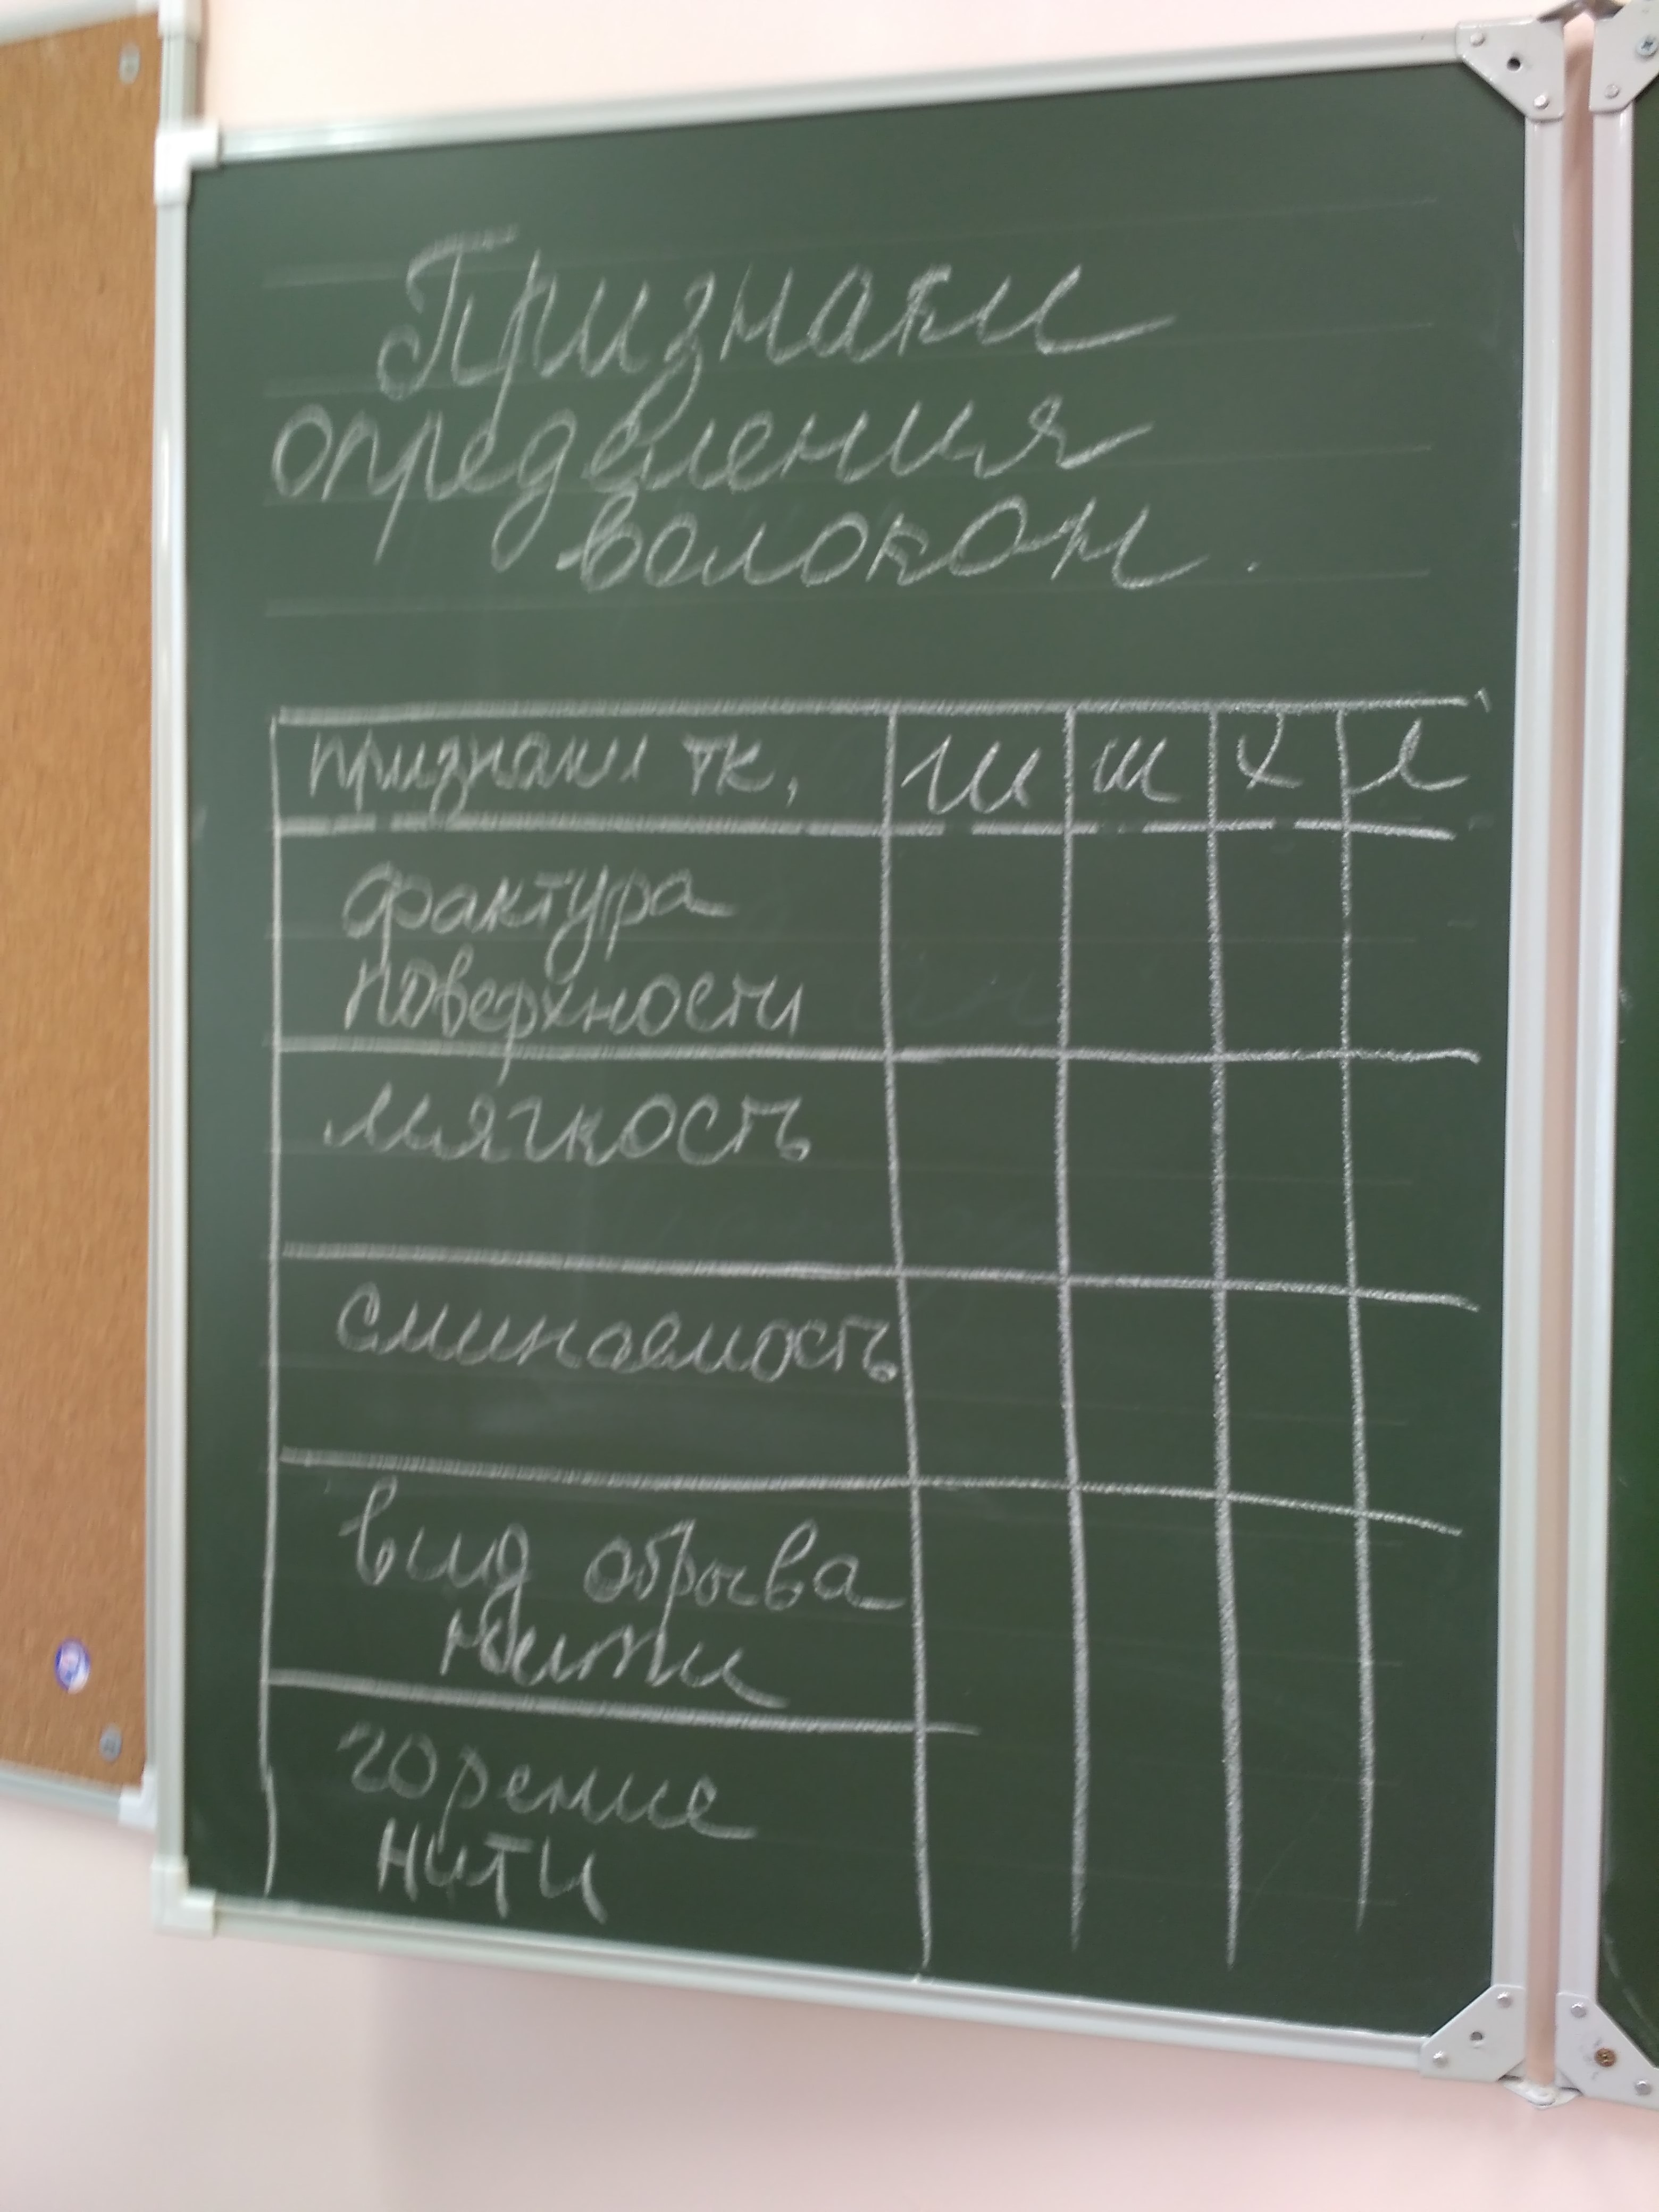 Признаки
определения
волокон.
признаки тк, ш ш х л
фактура
поверхности
мягкость
сминаемость
вид обрыва
нити
горение
нити